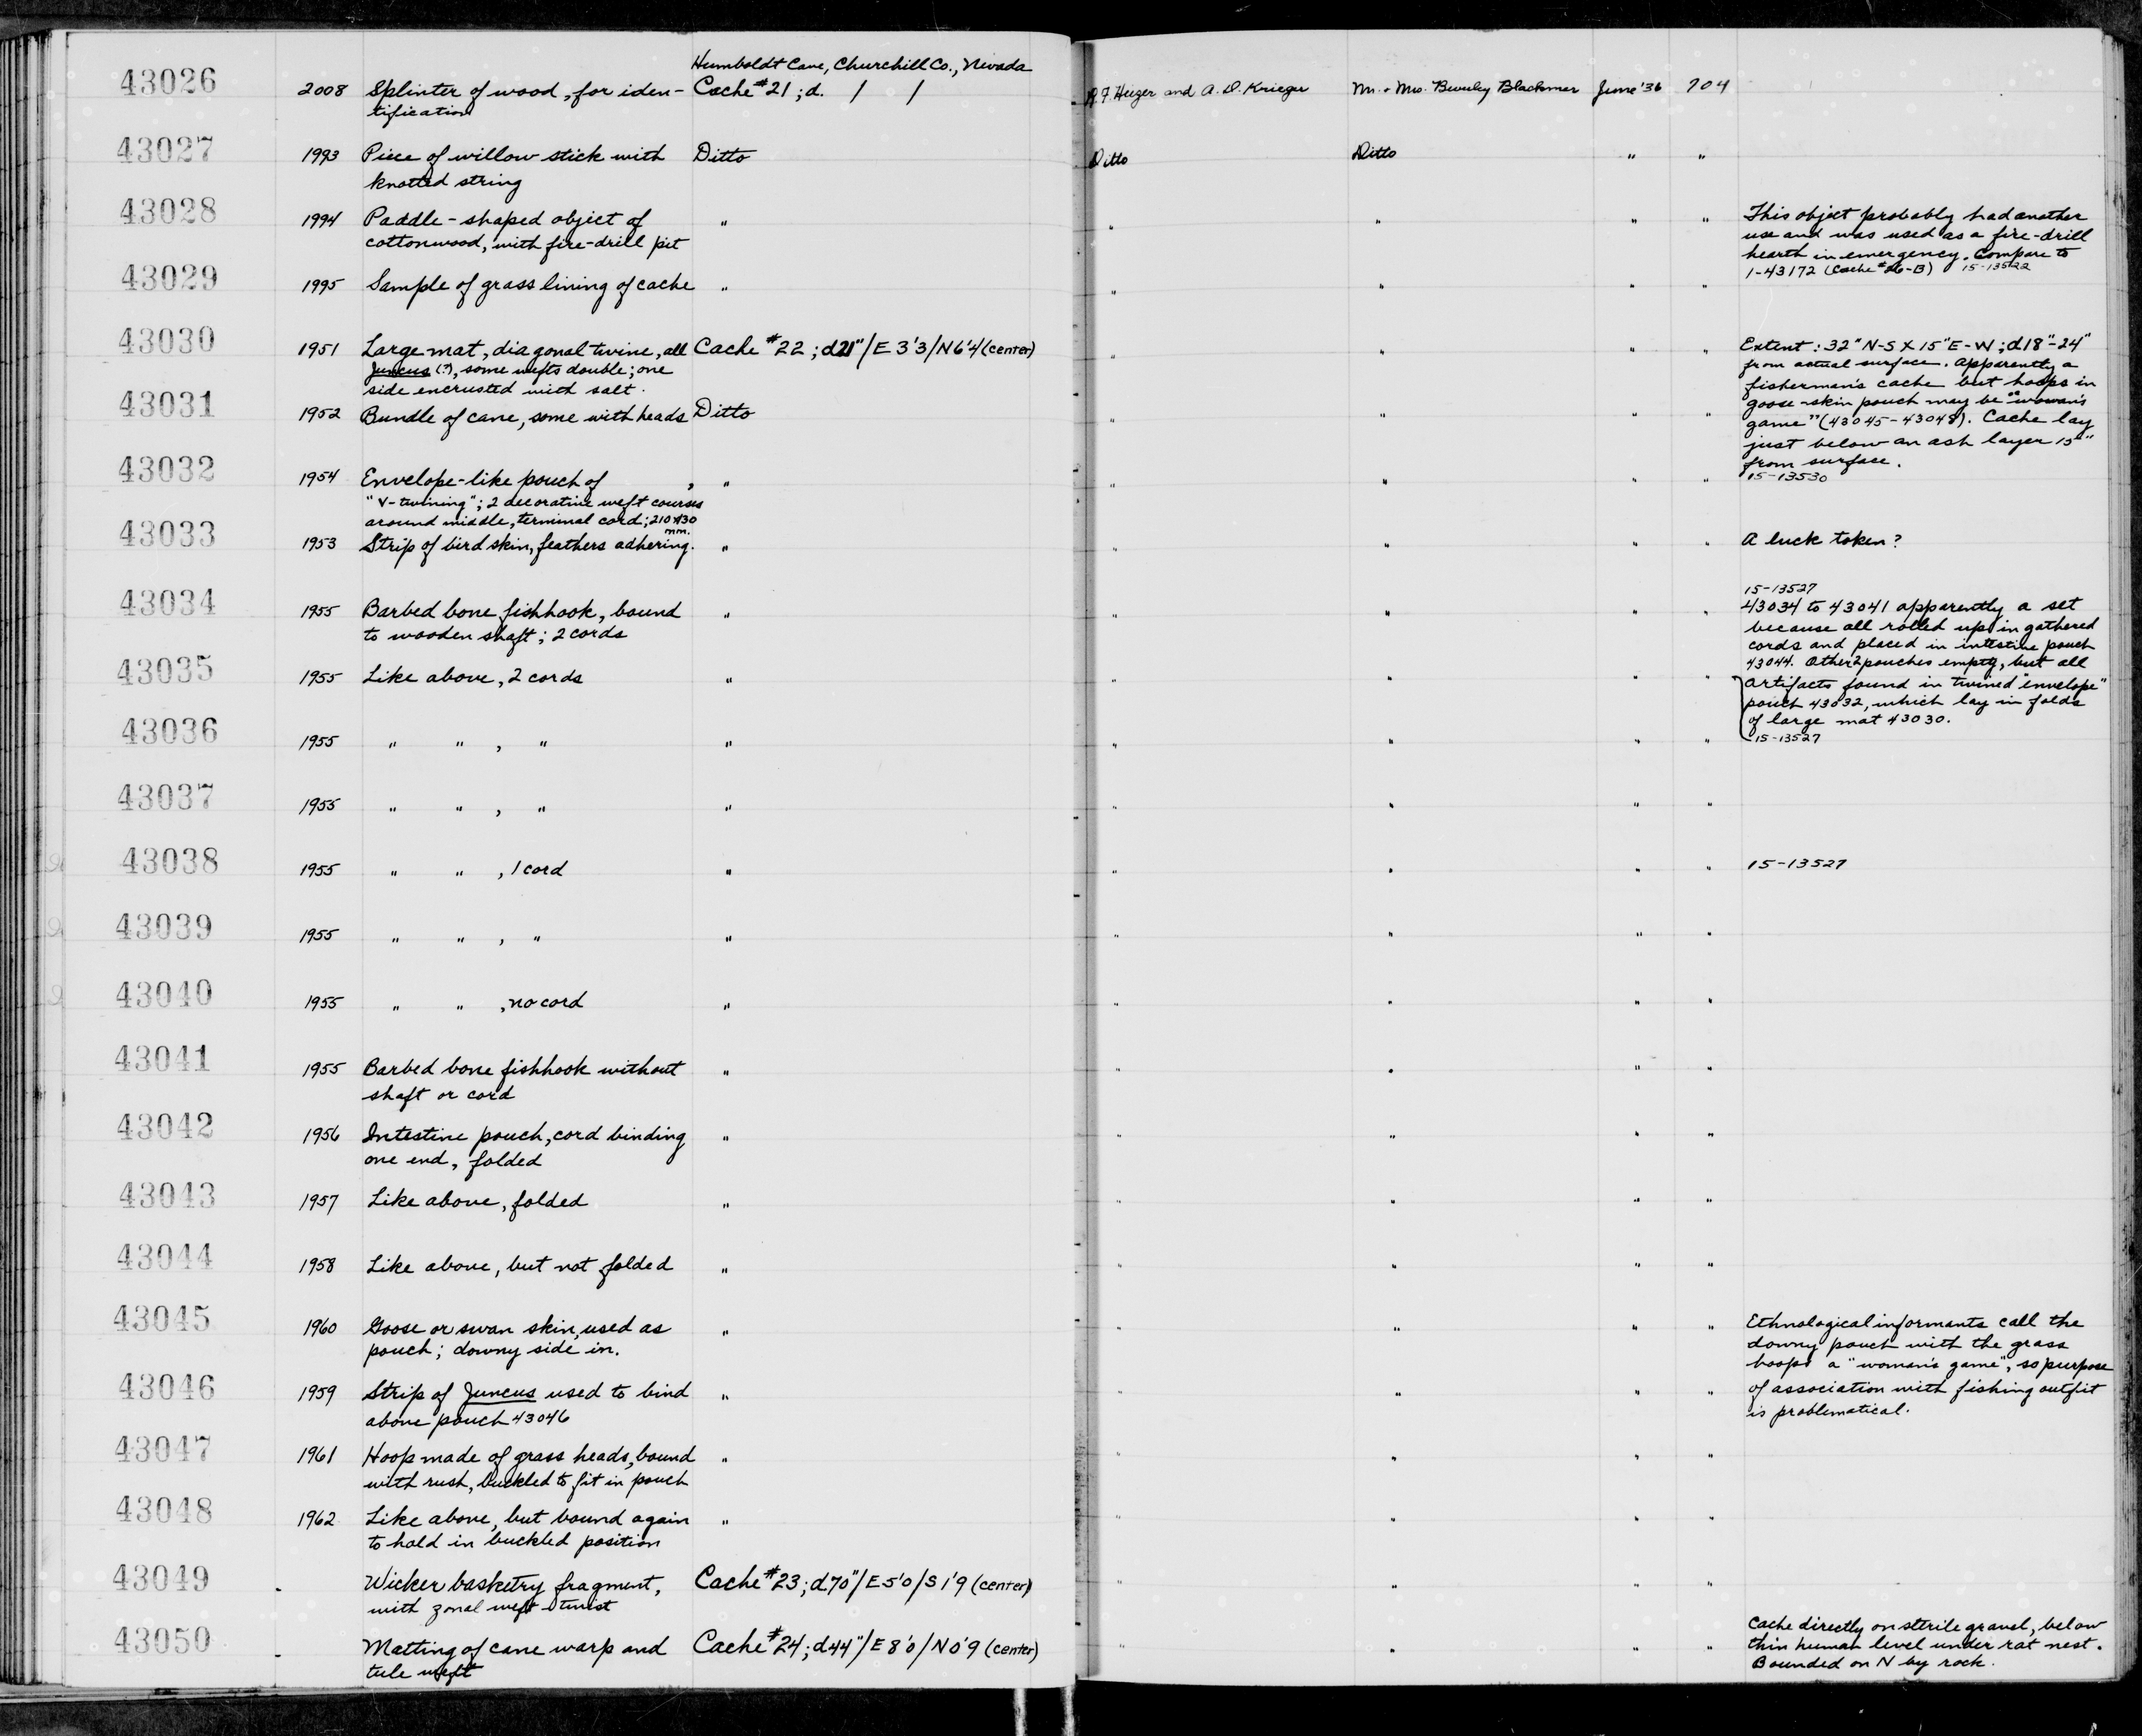 Humboldt Cave, Churchill Co., Nevada
43026 2008 Splinter of wood, for iden- Cache #21; d. / / R. F. Heizer and A. D. Krieger Mr. & Mrs. Beverley Blackmer June '36 704
tification
43027 1993 Piece of willow stick with Ditto Ditto Ditto " "
knotted string
43028 1994 Paddle-shaped object of " " " " " This object probably had another
cottonwood, with fire-drill pit use and was used as a fire-drill
hearth in emergency. Compare to
1-43172 (Cache #26-B) 15-13522
43029 1995 Sample of grass lining of cache " " " " "
43030 1951 Large mat, diagonal twine, all Cache #22; d21"/E 3'3/N6'4 (center) " " " " Extent: 32" N-S X 15" E-W; d18"-24"
Juncus (?), some wefts double; one from actual surface. Apparently a
side encrusted with salt. fisherman's cache but hoops in
43031 1952 Bundle of cane, some with heads Ditto " " " " goose-skin pouch may be "woman's
game" (43045-43048). Cache lay
just below an ash layer 15"
from surface.
43032 1954 Envelope-like pouch of , " " " " " 15-13530
"V-twining"; 2 decorative weft courses
around middle, terminal cord; 210x130
mm.
43033 1953 Strip of bird skin, feathers adhering. " " " " " A luck token?
15-13527
43034 1955 Barbed bone fishhook, bound " " " " " 43034 to 43041 apparently a set
to wooden shaft; 2 cords because all rolled up in gathered
cords and placed in intestine pouch
43044. Other 2 pouches empty, but all
43035 1955 Like above, 2 cords " " " " " artifacts found in twined "envelope"
pouch 43032, which lay in folds
of large mat 43030.
43036 1955 " " , " " " " " " 15-13527
43037 1955 " " , " " " " " "
43038 1955 " " , 1 cord " " " " " 15-13527
43039 1955 " " , " " " " " "
43040 1955 " " , no cord " " " " "
43041 1955 Barbed bone fishhook without " " " " "
shaft or cord
43042 1956 Intestine pouch, cord binding " " " " "
one end, folded
43043 1957 Like above, folded " " " " "
43044 1958 Like above, but not folded " " " " "
43045 1960 Goose or swan skin, used as " " " " " Ethnological informants call the
pouch; downy side in. downy pouch with the grass
hoops a "woman's game", so purpose
43046 1959 Strip of Juncus used to bind " " " " " of association with fishing outfit
above pouch 43046 is problematical.
43047 1961 Hoop made of grass heads, bound " " " " "
with rush, buckled to fit in pouch
43048 1962 Like above, but bound again " " " " "
to hold in buckled position
43049 - Wicker basketry fragment, Cache #23; d70"/E5'0/S1'9 (center) " " " "
with zonal weft twist
43050 - Matting of cane warp and Cache #24; d44"/E8'0/N0'9 (center) " " " " Cache directly on sterile gravel, below
tule weft thin human level under rat nest.
Bounded on N by rock.